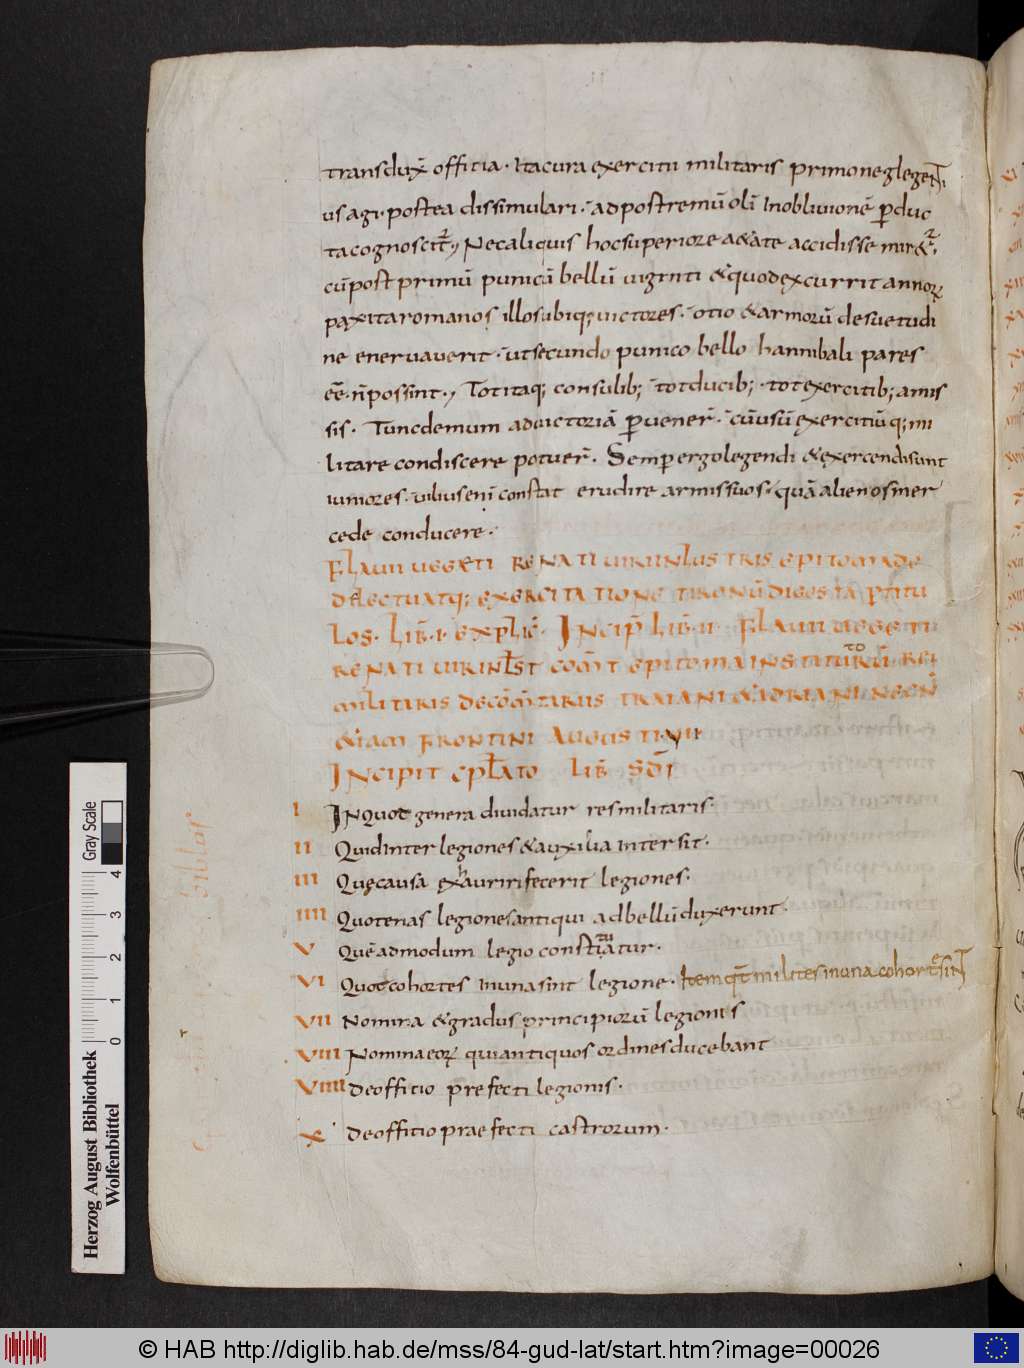 transdux̄ officia · Itacura exercitii militaris primoneglegenti
us agi · postea dissimulari · adpostremū olī Inobliuionē ꝑduc
ta cognoscit᷑ Nec aliquis hoc superiore aetate accidisse miret᷑
cū post primū punicū bellū uiginti & quod excurrit annoꝝ
pax ita romanos illos ubiq; uictores · otio & armorū desuetudi
ne eneruauerit · ut secundo punico bello hannibali pares
eē · n̄ possint · Tot itaq; consulib; tot ducib; · tot exercitib; amis
sis · Tunc demum ad uictoriā ꝑuener̄ · cū usū exercitiūq; mi
litare condiscere potuer̄ · Semper ergo legendi & exercendi sunt
iuniores · uilius eni constat erudire armis suos · quā alienos mer
cede conducere ·
FLAUII UEGETI RENATI UIRI INLUSTRIS EPITOMA DE
DELECTU ATQ; EXERCITATIONE TIRONŪ DIGESTA ꝑTITU
LOS · LIB̄ · I · EXPLIC̄ · INCIP̄ LIB̄ · II · FLAUII UEGETII
RENATI UIR INLST COMT EPITOMA INSTITUTORŪ REI
MILITARIS DE COM̄TARIIS TRAIANI & ADRIANI NECN̄
&IAM FRONTINI AUGUSTI
INCIPIT CPLATO LIB̄ SDI
I IN Quot genera diuidatur res militaris
II Quid Inter legiones & auxilia intersit ·
III Quę causa exhauriri fecerit legiones ·
IIII Quotenas legiones antiqui ad bellū duxerunt ·
V Quēadmodum legio constituatur ·
VI Quot cohortes In una sint legione · Item qt milites in una cohorte sint
VII Nomina & gradus principiorū legionis
VIII Nomina eoꝝ qui antiquos ordines ducebant
VIIII de officio prefecti legionis ·
X de officio praefecti castrorum ·
Herzog August Bibliothek
Wolfenbüttel
Gray Scale
0 1 2 3 4
© HAB http://diglib.hab.de/mss/84-gud-lat/start.htm?image=00026